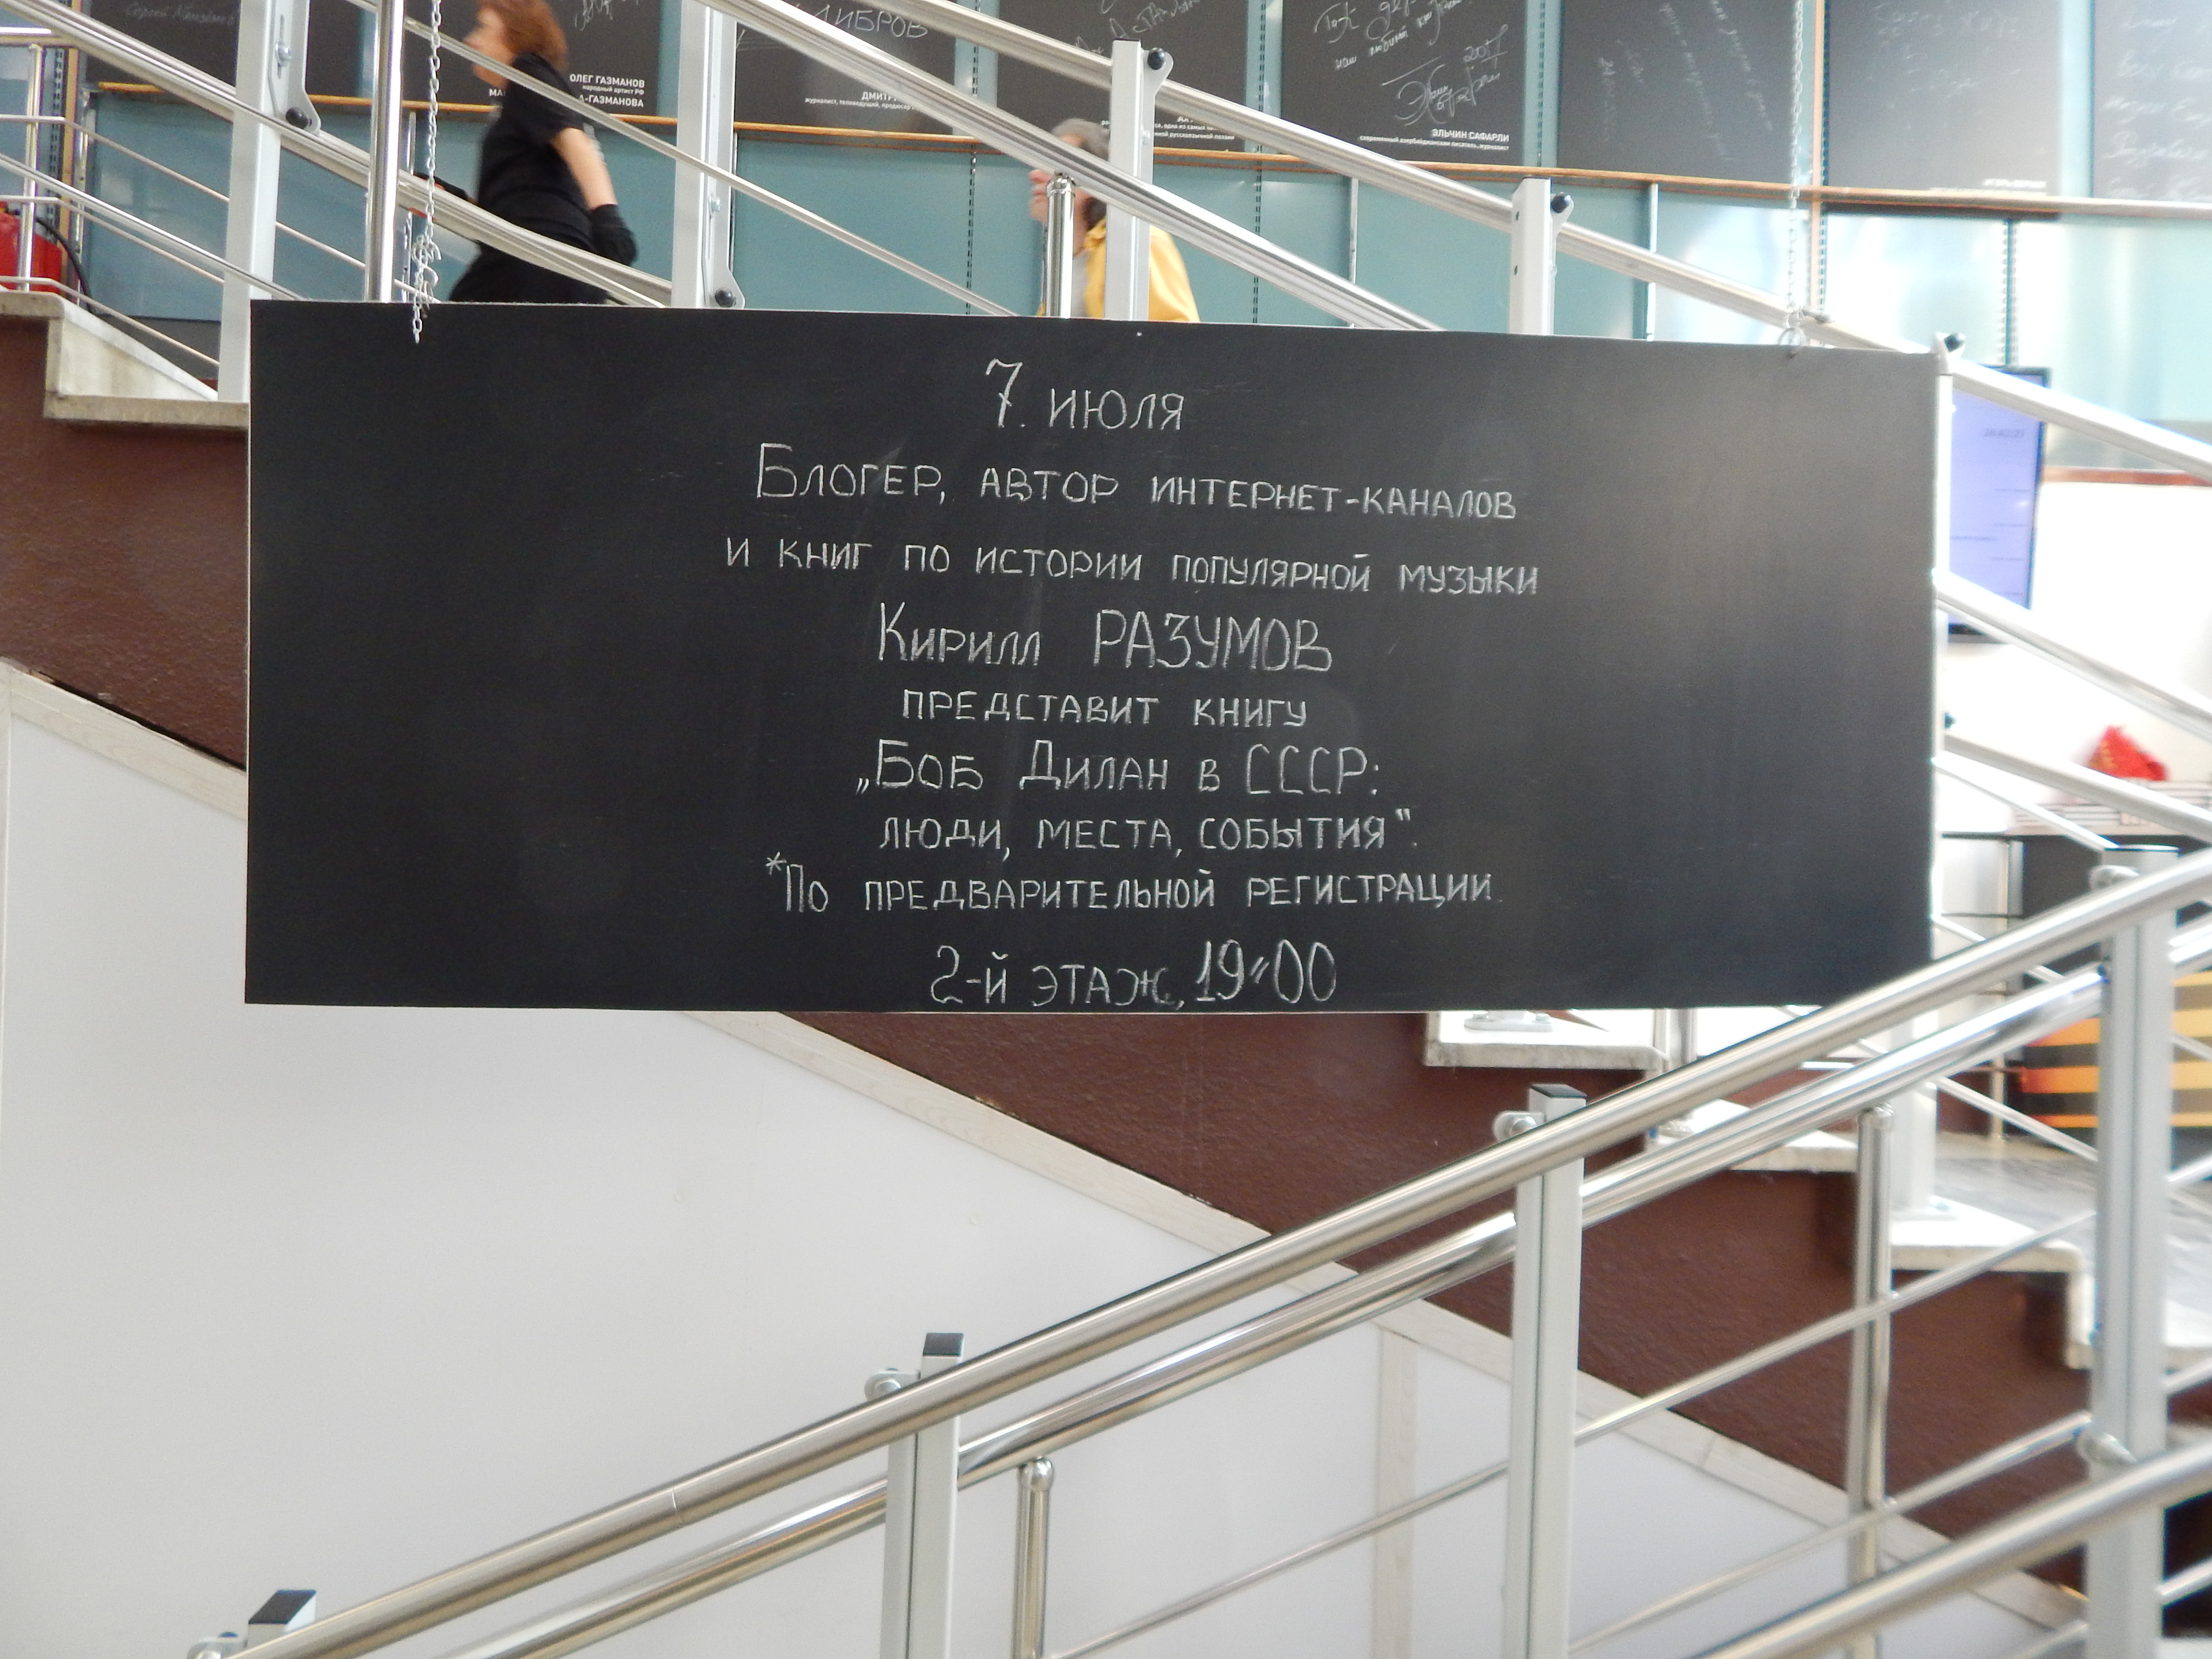 ЛИБРОВ
2017
ОЛЕГ ГАЗМАНОВ
народный артист РФ
А-ГАЗМАНОВА
журналист, телеведущий,
ЭЛЬЧИН САФАРЛИ
современный азербайджанский писатель, журналист
7. ИЮЛЯ
БЛОГЕР, АВТОР ИНТЕРНЕТ-КАНАЛОВ
И КНИГ ПО ИСТОРИИ ПОПУЛЯРНОЙ МУЗЫКИ
КИРИЛЛ РАЗУМОВ
ПРЕДСТАВИТ КНИГУ
„БОБ ДИЛАН В СССР:
ЛЮДИ, МЕСТА, СОБЫТИЯ".
*ПО ПРЕДВАРИТЕЛЬНОЙ РЕГИСТРАЦИИ.
2-Й ЭТАЖ, 19-00